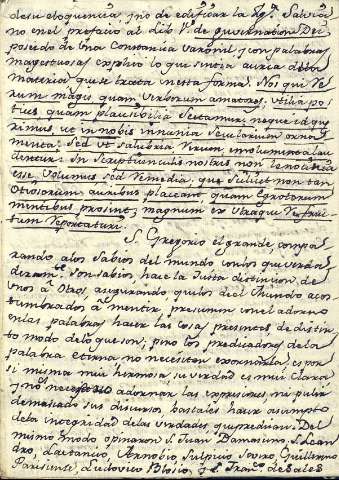 desu eloquencia, y no de edificar la Yga. Salvia
no en el prefacio al Lib. 1º de Guvernation Dei
poseido de una Constancia Varonil y con palabras
magestuosas explico lo que sentia acerca de la
materia que se trata nesta forma. Nos qui Re
rum magis quam Verborum amatores, utilia po
tius quam plausibilia Sectamur, neque id que
rimus, ut in nobis innania Secularium orna
menta: Sed ut salubria rerum emolumenta lau
dentur: In Scriptiunculis nostris, non lenocinia
esse Volumus sed remedia, que scilicet non tan
Otiosorum auribus placeant, quam Egrotorum
mentibus prosint: magnum ex utraque re fruc
tum reportaturi.
S. Gregorio el grande, compa
rando alos Sabios del mundo conlos que verda
deramte. Son sabios hace la justa distincion de
unos á Otros, asegurando qu los del Mundo acos
tumbrados á mentir, presumen con el adorno
enlas palabras hacer las cosas presentes de distin
to modo delo que son; pero los predicadores dela
palabra eterna no necesitan exornarla, es por
si misma mui hermosa su verdad es mui clara
y no necesario adornar las expresiones, ni pulir
demasiado sus discursos, bastales hacer asumpto
dela integridad de las verdades, que predican. Del
mismo modo opinaron S. Juan Damasceno, S. Lean
dro, Lactancio, Arnobio, Sulpicio Severo, Guillermo
Parisiense, Ludovico Blosio, y S. Franco. de Sales